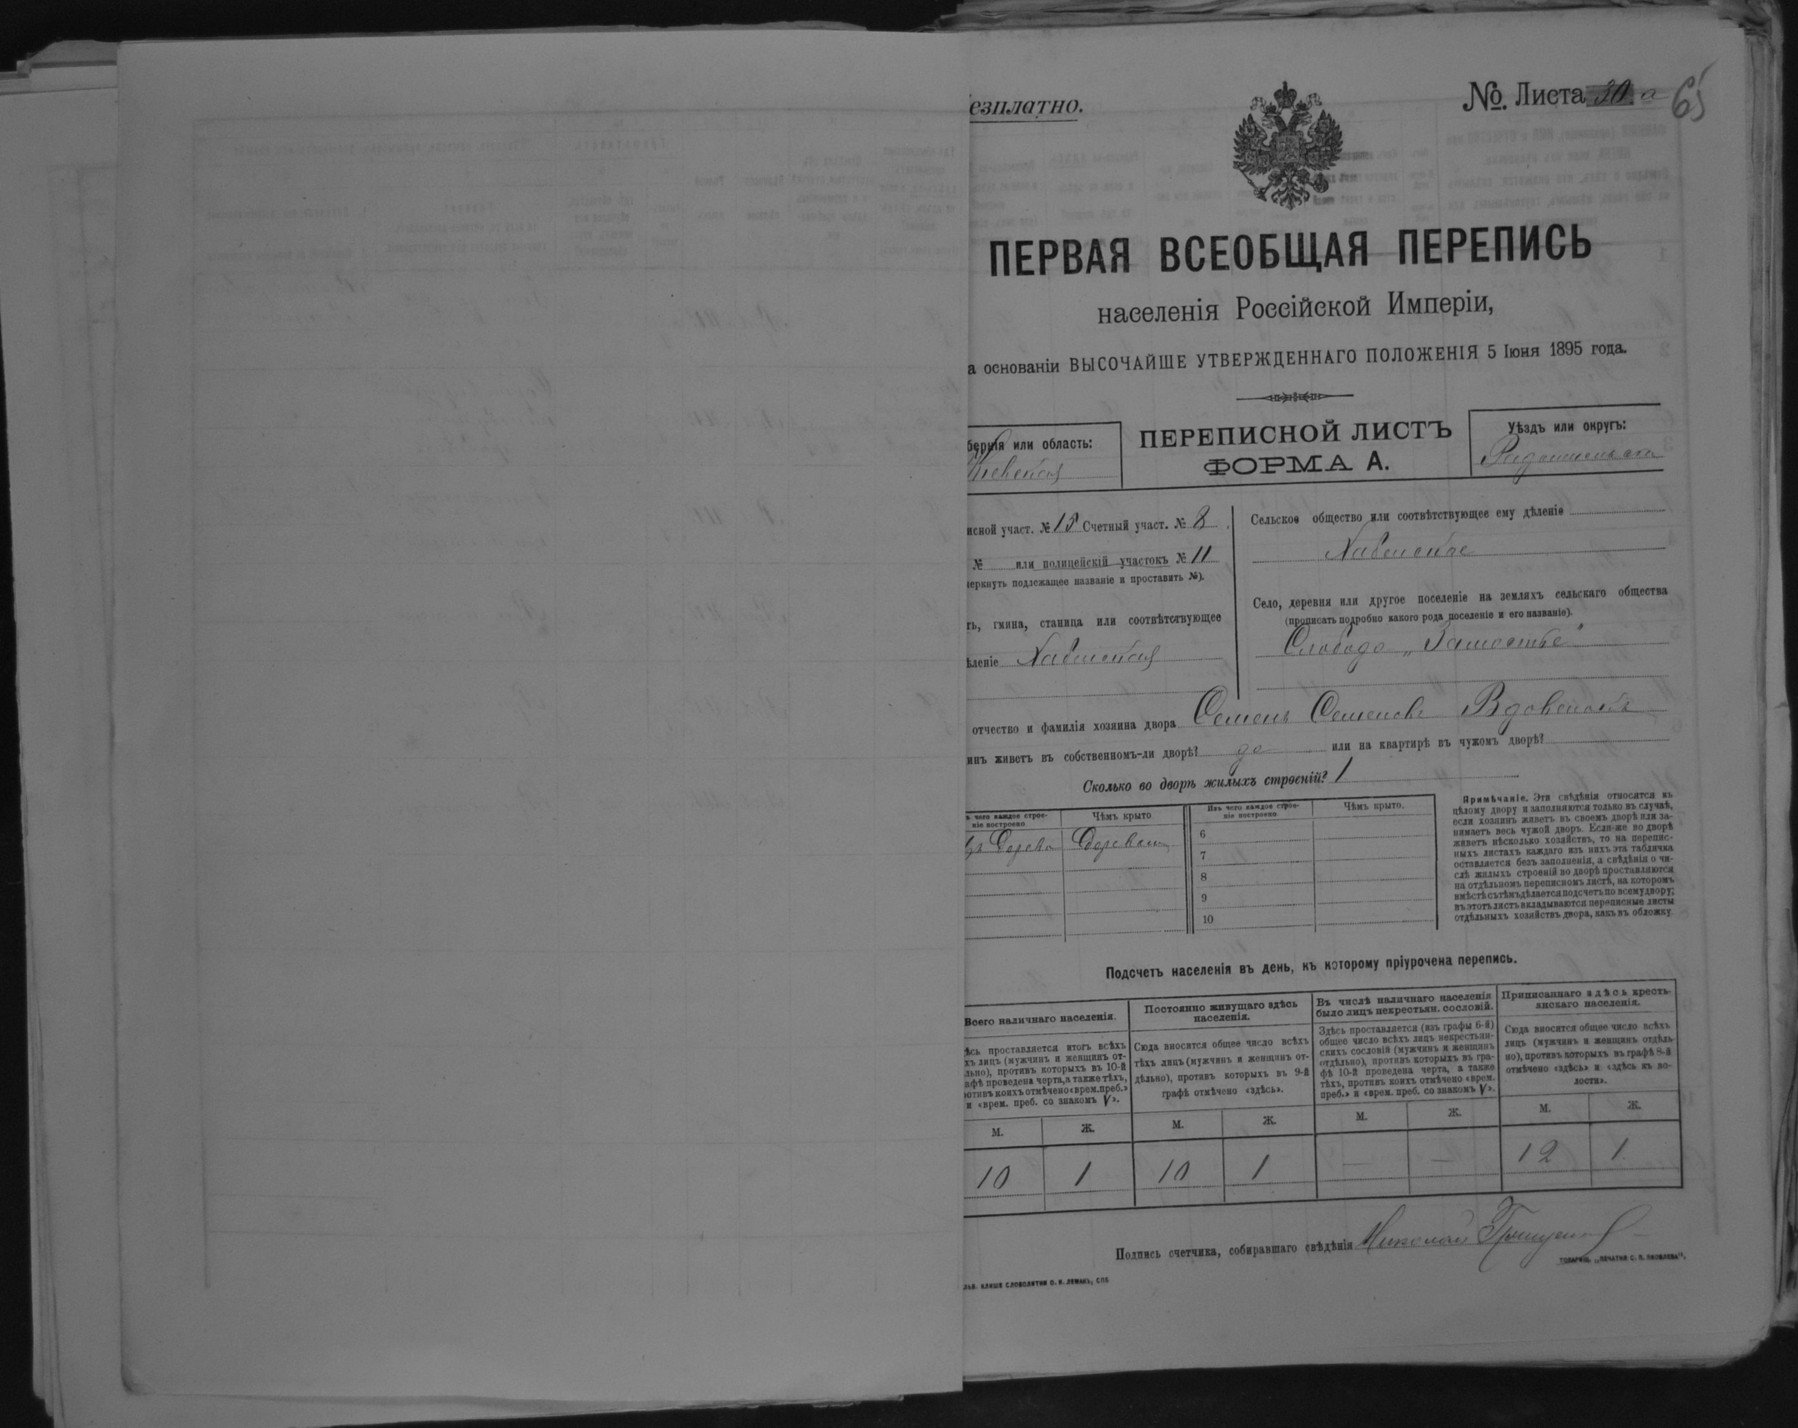 езплатно.
№. Листа 20 а 65
ПЕРВАЯ ВСЕОБЩАЯ ПЕРЕПИСЬ
населенія Россійской Имперіи,
а основаніи ВЫСОЧАЙШЕ УТВЕРЖДЕННАГО ПОЛОЖЕНІЯ 5 Іюня 1895 года.
бернія или область:
Кіевская
ПЕРЕПИСНОЙ ЛИСТЪ
ФОРМА А.
Уѣздъ или округъ:
исной участ. № 15 Счетный участ. № 8.
№ или полицейскій участокъ № 11
черкнуть подлежащее названіе и проставить №).
ть, гмина, станица или соотвѣтствующее
ѣленіе
Сельское общество или соотвѣтствующее ему дѣленіе
Село, деревня или другое поселеніе на земляхъ сельскаго общества
(прописать подробно какого рода поселеніе и его названіе).
Слобода „Замостье"
отчество и фамилія хозяина двора Семенъ Семеновъ Вдовенко
инъ живетъ въ собственномъ-ли дворѣ? да или на квартирѣ въ чужомъ дворѣ?
Сколько во дворѣ жилыхъ строеній? 1
ъ чего каждое строе-
ніе построено
Чѣмъ крыто
Изъ чего каждое строе-
ніе построено
Чѣмъ крыто.
Дерева
6
7
8
9
10
Примѣчаніе. Эти свѣдѣнія относятся къ
цѣлому двору и заполняются только въ случаѣ,
если хозяинъ живетъ въ своемъ дворѣ или за-
нимаетъ весь чужой дворъ. Если-же во дворѣ
живетъ нѣсколько хозяйствъ, то на перепис-
ныхъ листахъ каждаго изъ нихъ эта табличка
оставляется безъ заполненія, а свѣдѣнія о чи-
слѣ жилыхъ строеній во дворѣ проставляются
на отдѣльномъ переписномъ листѣ, на которомъ
вмѣстѣ съ тѣмъ дѣлается подсчетъ по всему двору;
въ этотъ листъ вкладываются переписные листы
отдѣльныхъ хозяйствъ двора, какъ въ обложку.
Подсчетъ населенія въ день, къ которому пріурочена перепись.
Всего наличнаго населенія.
ѣсь проставляется итогъ всѣхъ
хъ лицъ (мужчинъ и женщинъ от-
льно), противъ которыхъ въ 10-й
афѣ проведена черта, а также тѣхъ,
ротивъ коихъ отмѣчено «врем. преб.»
и «врем. преб. со знакомъ V».
Постоянно живущаго здѣсь
населенія.
Сюда вносится общее число всѣхъ
тѣхъ лицъ (мужчинъ и женщинъ от-
дѣльно), противъ которыхъ въ 9-й
графѣ отмѣчено «здѣсь».
Въ числѣ наличнаго населенія
было лицъ некрестьян. сословій.
Здѣсь проставляется (изъ графы 6-й)
общее число всѣхъ лицъ некрестьян-
скихъ сословій (мужчинъ и женщинъ
отдѣльно), противъ которыхъ въ гра-
фѣ 10-й проведена черта, а также
тѣхъ, противъ коихъ отмѣчено «врем.
преб.» и «врем. преб. со знакомъ V».
Приписаннаго здѣсь кресть-
янскаго населенія.
Сюда вносится общее число всѣхъ
лицъ (мужчинъ и женщинъ отдѣль-
но), противъ которыхъ въ графѣ 8-й
отмѣчено «здѣсь» и «здѣсь въ во-
лости».
М. Ж. М. Ж. М. Ж. М. Ж.
10 1 10 1 — — 12 1
Подпись счетчика, собиравшаго свѣдѣнія Николай
ТОВАРИЩ. „ПЕЧАТНЯ С. П. ЯКОВЛЕВА",
КЛИШЕ СЛОВОЛИТНИ О. И. ЛЕМАНЪ, СПБ